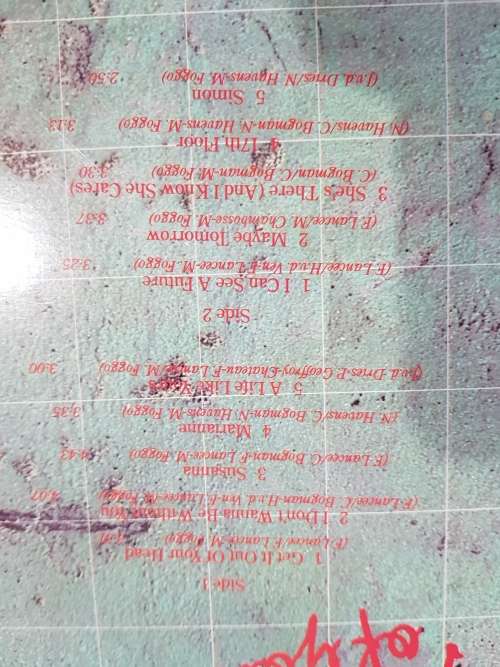 Side 1
1 Get It Out Of Your Head
(F. Lancee/F. Lancee-M. Foggo)
2 I Don't Wanna Be Without You
(F. Lancee/C. Bogman/H.v.d. Ven-F. Lancee-M. Foggo) 4:07
3 Susanna
(F. Lancee/C. Bogman-F. Lancee-M. Foggo) 4:43
4 Marianne
(N. Havens/C. Bogman-N. Havens-M. Foggo) 3:35
5 A Life Like Yours
(J.v.d. Dries-P. Geoffroy-Chateau-F. Lancee/M. Foggo) 3:00
Side 2
1 I Can See A Future
(F. Lancee/H.v.d. Ven-F. Lancee-M. Foggo) 3:25
2 Maybe Tomorrow
(F. Lancee/M. Chambosse-M. Foggo) 3:37
3 She's There (And I Know She Cares)
(C. Bogman/C. Bogman-M. Foggo) 3:30
4 17th Floor
(N. Havens/C. Bogman-N. Havens-M. Foggo) 3:13
5 Simon
(J.v.d. Dries/N. Havens-M. Foggo) 2:50